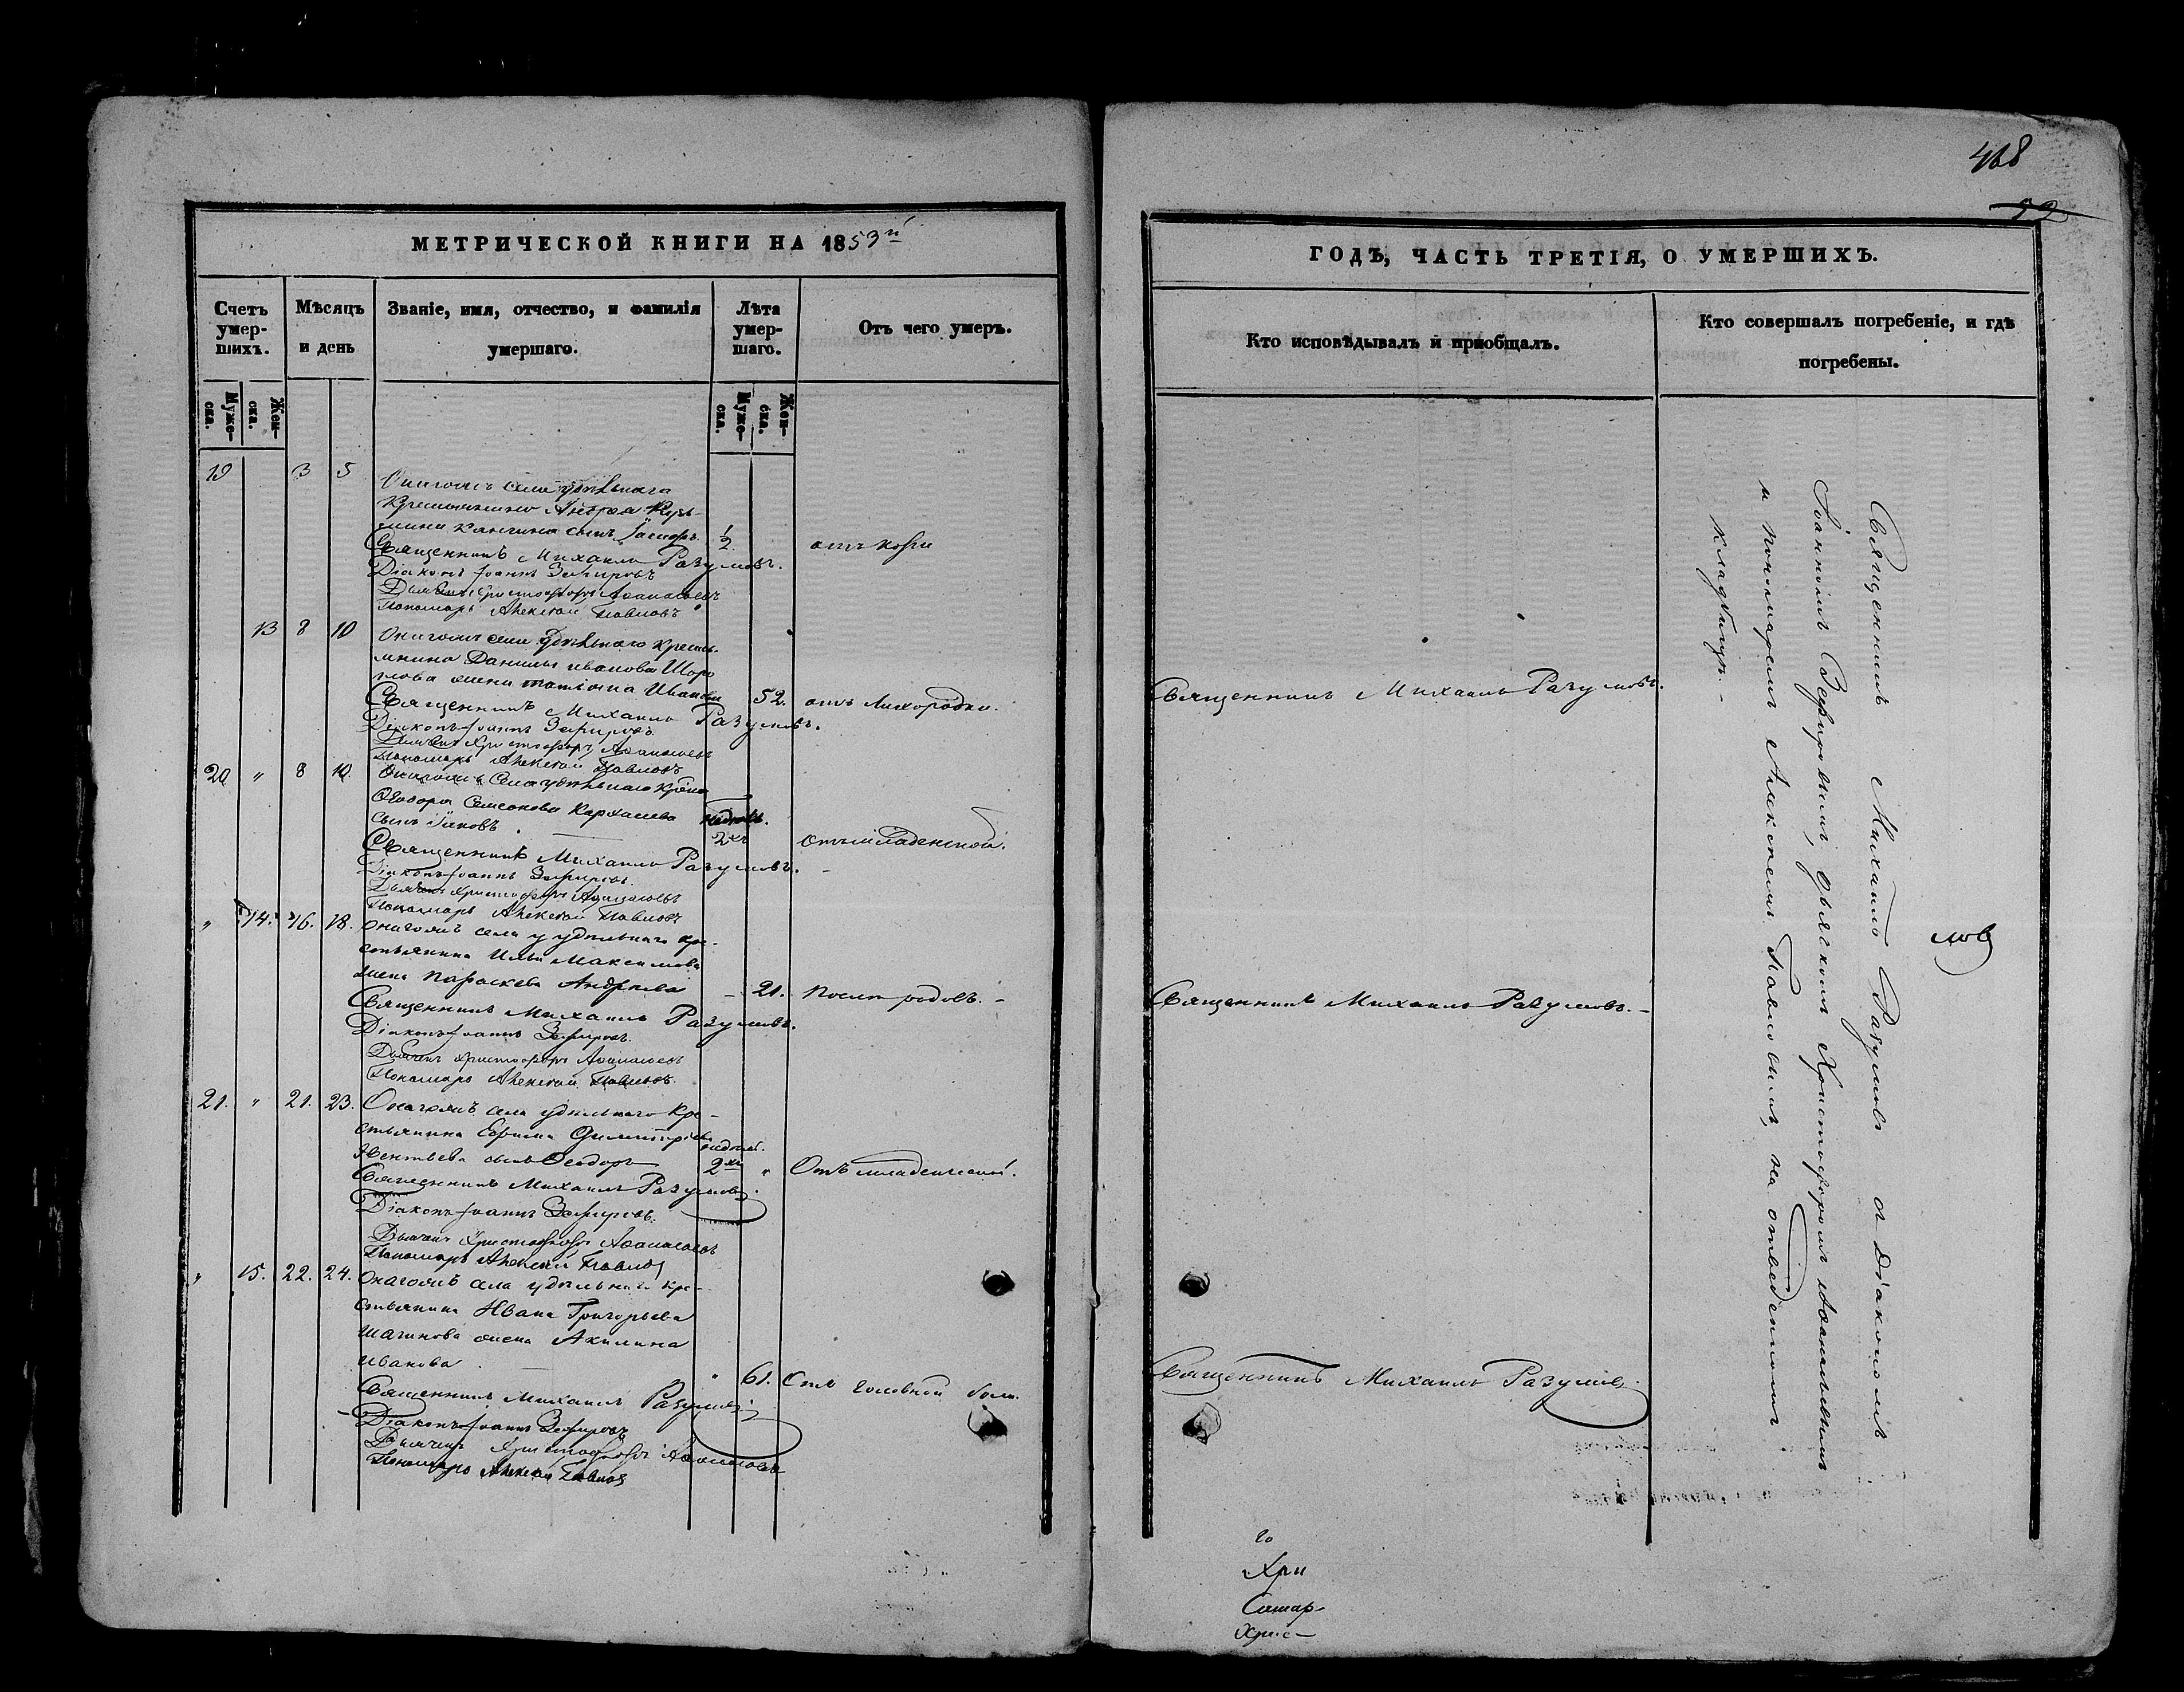 468
22
МЕТРИЧЕСКОЙ КНИГИ НА 1853й
Счетъ умер-
шихъ.
Мѣсяцъ
и день
Званіе, имя, отчество, и фамилія
умершаго.
Лѣта
умер-
шаго.
Отъ чего умеръ.
Муже-
ска.
Жен-
ска.
Муже-
ска.
Жен-
ска.
19 3 5
Онагожъ села удѣльнаго
крестьянина
сынъ
1/2
отъ кори
Священникъ Михаилъ Разумовъ.
Діаконъ Іоаннъ Зефировъ
Дьячекъ Христофоръ Аѳанасьевъ
Пономарь Алексѣй Павловъ
13 8 10
Онагожъ села удѣльнаго кресть-
янина Данилы Иванова
жена Татіана Иванова
52. отъ лихорадки.
Священникъ Михаилъ Разумовъ.
Діаконъ Іоаннъ Зефировъ.
Дьячекъ Христофоръ Аѳанасьевъ
Пономарь Алексѣй Павловъ
20 " 8 10.
Онагожъ села удѣльнаго
Ѳеодора Семенова
сынъ Іаковъ.
2хъ
отъ младенской.
Священникъ Михаилъ Разумовъ.
Діаконъ Іоаннъ Зефировъ.
Дьячекъ Христофоръ Аѳанасьевъ
Пономарь Алексѣй Павловъ
" 14. 16. 18.
Онагожъ села удѣльнаго кре-
стьянина Ильи Максимова
жена Параскева Андреева
— 21. После родовъ. —
Священникъ Михаилъ Разумовъ.
Діаконъ Іоаннъ Зефировъ.
Дьячекъ Христофоръ Аѳанасьевъ
Пономарь Алексѣй Павловъ.
21. " 21. 23.
Онагожъ села удѣльнаго кре-
стьянина Ефима Димитріева
сынъ Ѳеодоръ
недѣль.
2хъ " Отъ младенческой.
Священникъ Михаилъ Разумовъ.
Діаконъ Іоаннъ Зефировъ.
Дьячекъ Христофоръ Аѳанасьевъ
Пономарь Алексѣй Павловъ
" 15. 22. 24.
Онагожъ села удѣльнаго кре-
стьянина Ивана Григорьева
Шагинова жена Акилина
Иванова.
" 61. Отъ головной боли.
Священникъ Михаилъ Разумовъ
Діаконъ Іоаннъ Зефировъ
Дьячекъ Христофоръ Аѳанасьевъ
Пономарь Алексѣй Павловъ
ГОДЪ, ЧАСТЬ ТРЕТІЯ, О УМЕРШИХЪ.
Кто исповѣдывалъ и приобщалъ.
Кто совершалъ погребеніе, и гдѣ
погребены.
Священникъ Михаилъ Разумовъ.
Священникъ Михаилъ Разумовъ. —
Священникъ Михаилъ Разумовъ.
Священникъ Михаилъ Разумовъ съ Діакономъ
Іоанномъ Зефировымъ, дьячкомъ Христофоромъ Аѳанасьевымъ
и пономаремъ Алексѣемъ Павловымъ, на отведенномъ
кладбищѣ. —
мов
го
Хри
Самар-
Хрис-